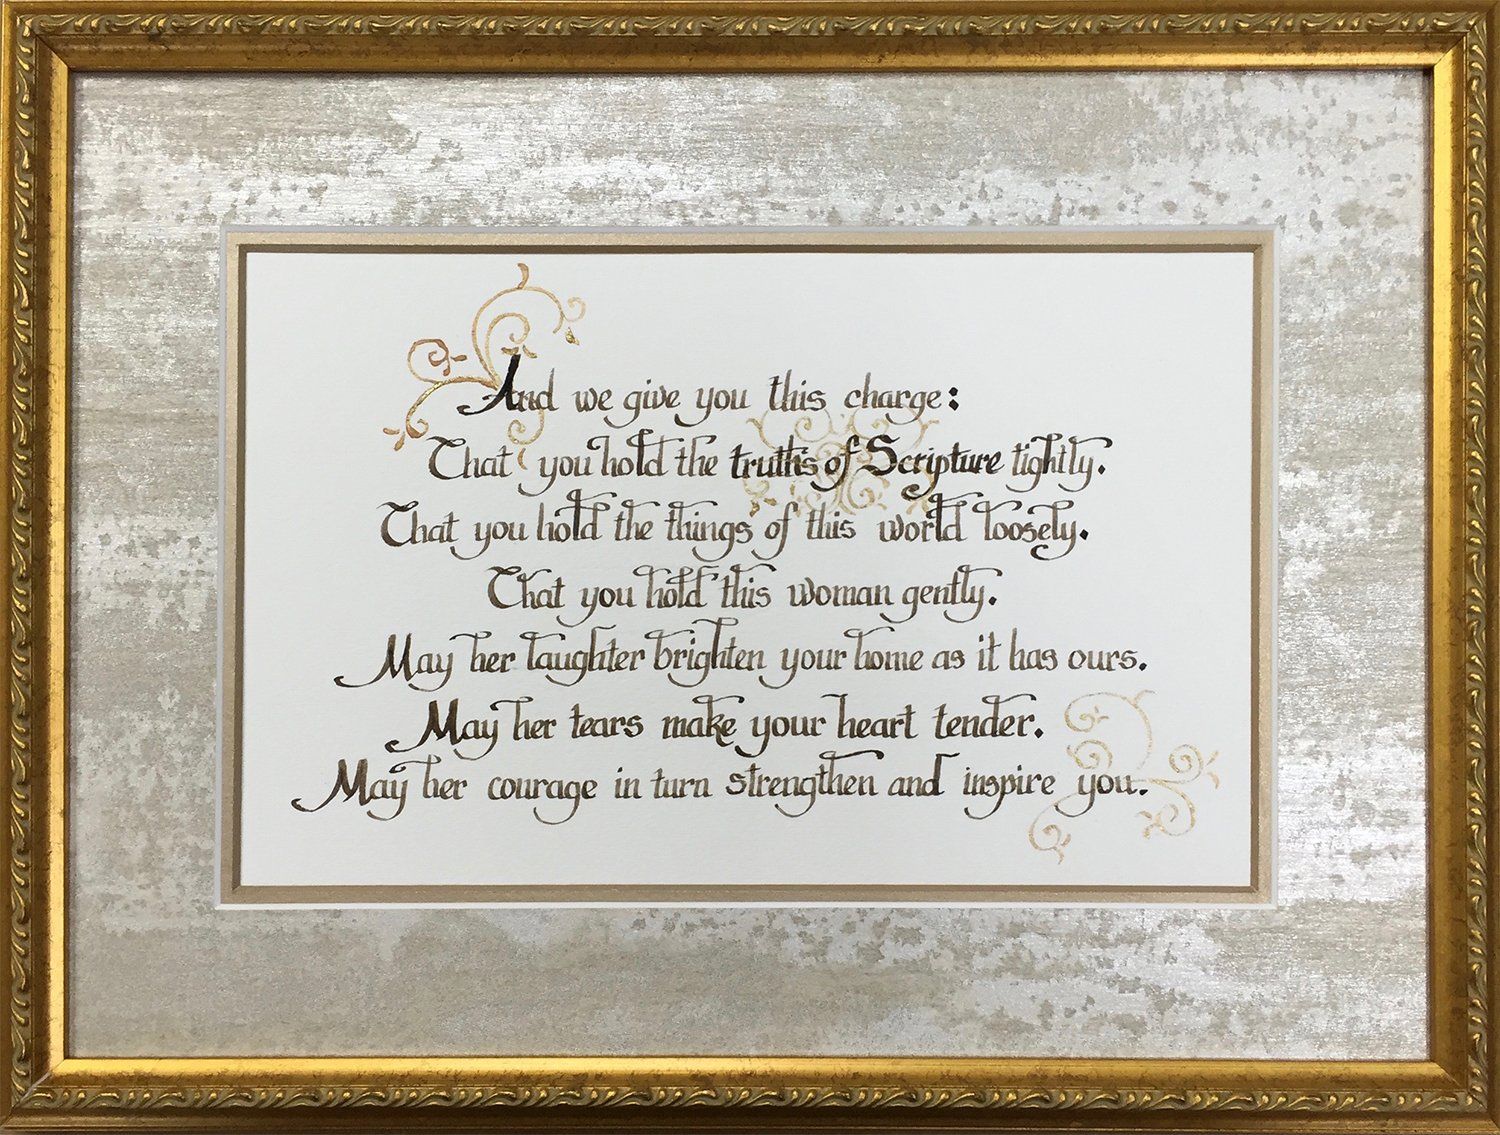 And we give you this charge:
That you hold the truths of Scripture tightly.
That you hold the things of this world loosely.
That you hold this woman gently.
May her laughter brighten your home as it has ours.
May her tears make your heart tender.
May her courage in turn strengthen and inspire you.